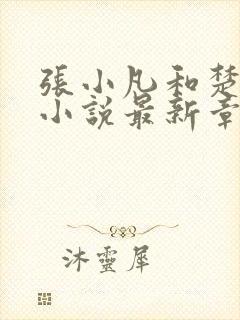 張小凡和楚
小說最新章
沐靈犀